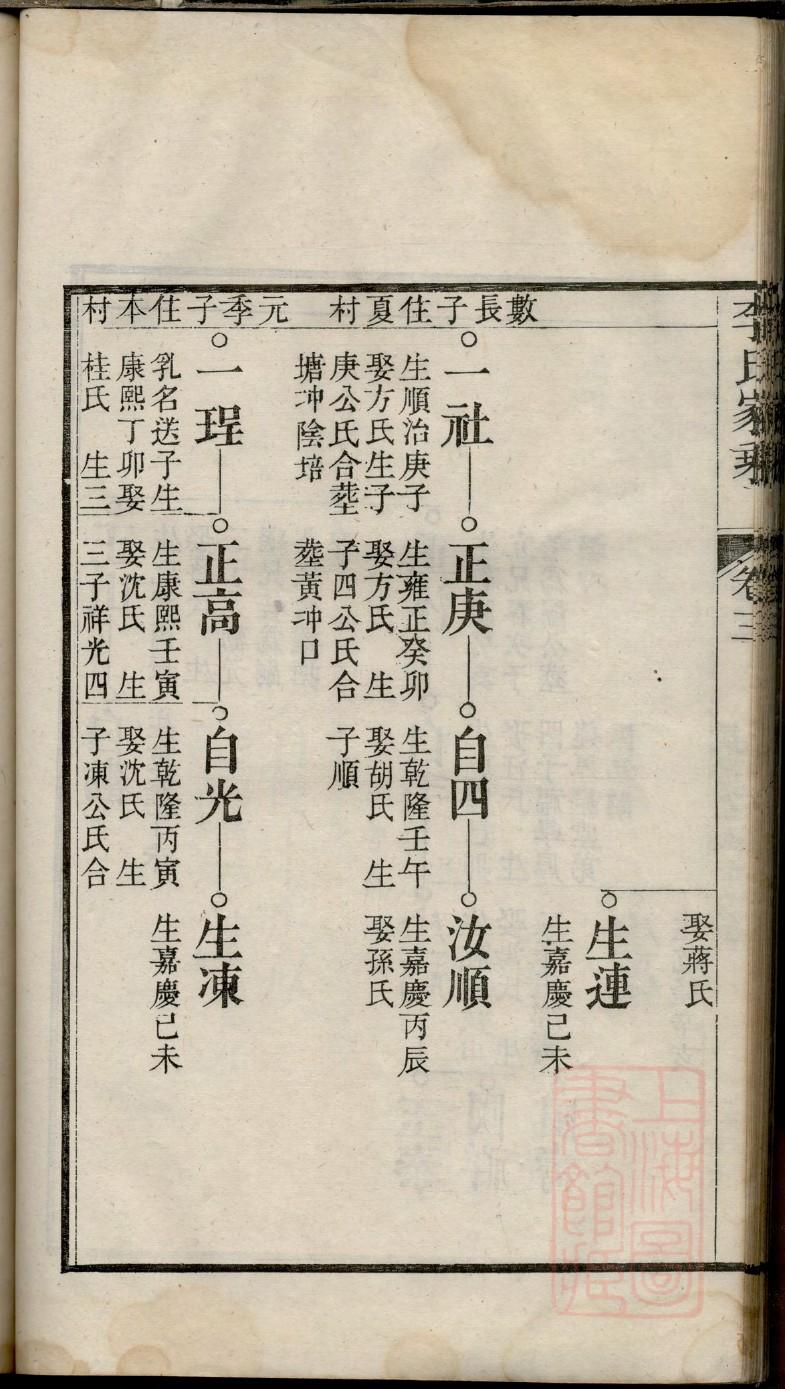 李氏家乘
卷三
娶蔣氏
生連
生嘉慶己未
數長子住夏村
一社
生順治庚子
娶方氏生子
庚公氏合塟
塘冲陰培
正庚
生雍正癸卯
娶方氏 生
子四公氏合
塟黃冲口
自四
生乾隆壬午
娶胡氏 生
子順
汝順
生嘉慶丙辰
娶孫氏
元季子住本村
一珵
乳名送子生
康熙丁卯娶
桂氏 生三
正高
生康熙壬寅
娶沈氏 生
三子祥光四
自光
生乾隆丙寅
娶沈氏 生
子凍公氏合
生凍
生嘉慶己未
上海圖
書館藏